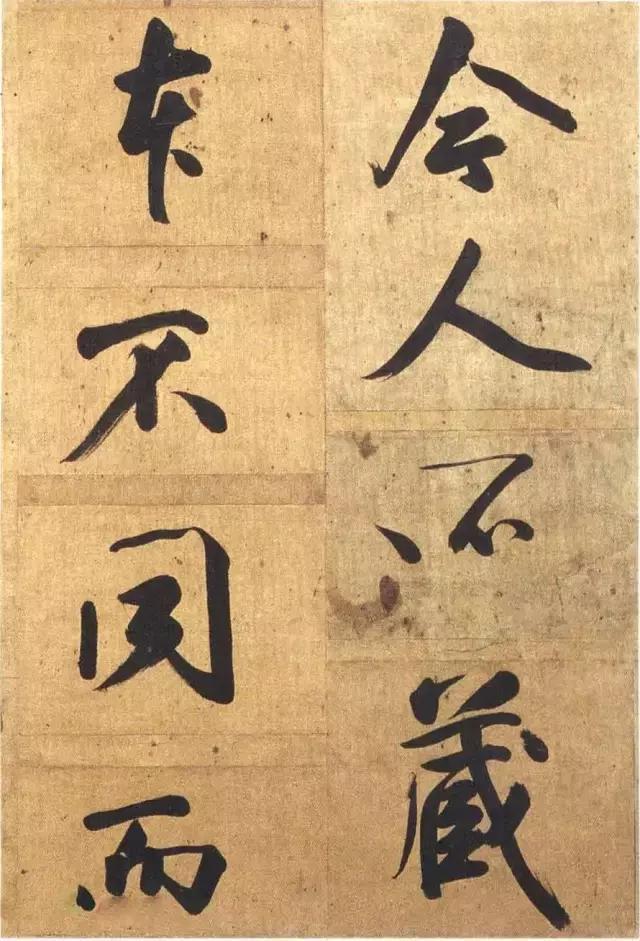 今人所藏
本不同而